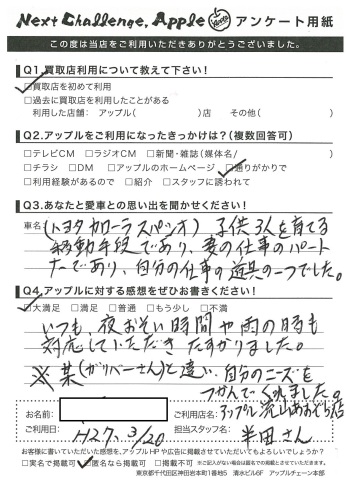 Next Challenge, Apple アンケート用紙
この度は当店をご利用いただきありがとうございました。
Q1.買取店利用について教えて下さい!
☑買取店を初めて利用
□過去に買取店を利用したことがある
利用した店舗: アップル( )店 その他( )
Q2.アップルをご利用になったきっかけは?(複数回答可)
□テレビCM □ラジオCM □新聞・雑誌(媒体名/ )
□チラシ □DM □アップルのホームページ ☑通りがかりで
□利用経験があるので □紹介 □スタッフに誘われて
Q3.あなたと愛車との思い出を聞かせください!
車名(トヨタカローラスパシオ) 子供3人を育てる
移動手段であり、妻の仕事のパート
たであり、自分の仕事の道具の一つでした。
Q4.アップルに対する感想をぜひお書きください!
☑大満足 □満足 □普通 □もう少し □不満
いつも、夜おそい時間や雨の時も
対応していただきたすかりました。
※某(ガリバーさん)と違い、自分のニーズを
つかんでくれました。
お名前: ご利用店名: アップル流山おおたか店
ご利用日: H27.3/20 担当スタッフ名: 半田さん
お客様に書いていただいた感想を、アップルHPや広告に掲載させていただいてもよろしいでしょうか?
□実名で掲載可 ☑匿名なら掲載可 □掲載不可 ※ご記入がない場合は匿名での掲載とさせていただきます。
東京都千代田区神田岩本町1番地5 清水ビル6F アップルチェーン本部